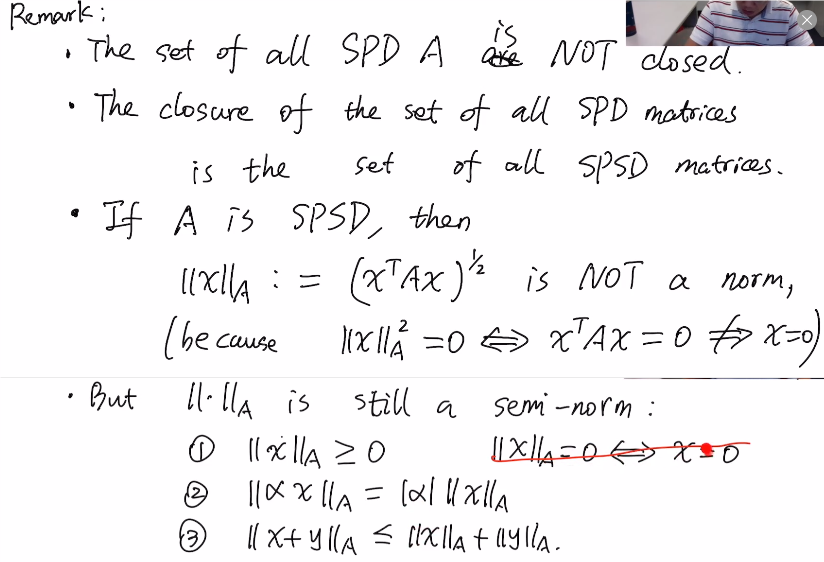 Remark:
• The set of all SPD A is NOT closed.
• The closure of the set of all SPD matrices
is the set of all SPSD matrices.
• If A is SPSD, then
||x||_A := (x^T A x)^{1/2} is NOT a norm,
(because ||x||_A^2 = 0 ⟺ x^T A x = 0 ⇏ x=0)
• But ||·||_A is still a semi-norm:
① ||x||_A ≥ 0 ||x||_A = 0 ⟺ x = 0
② ||αx||_A = |α| ||x||_A
③ ||x+y||_A ≤ ||x||_A + ||y||_A.